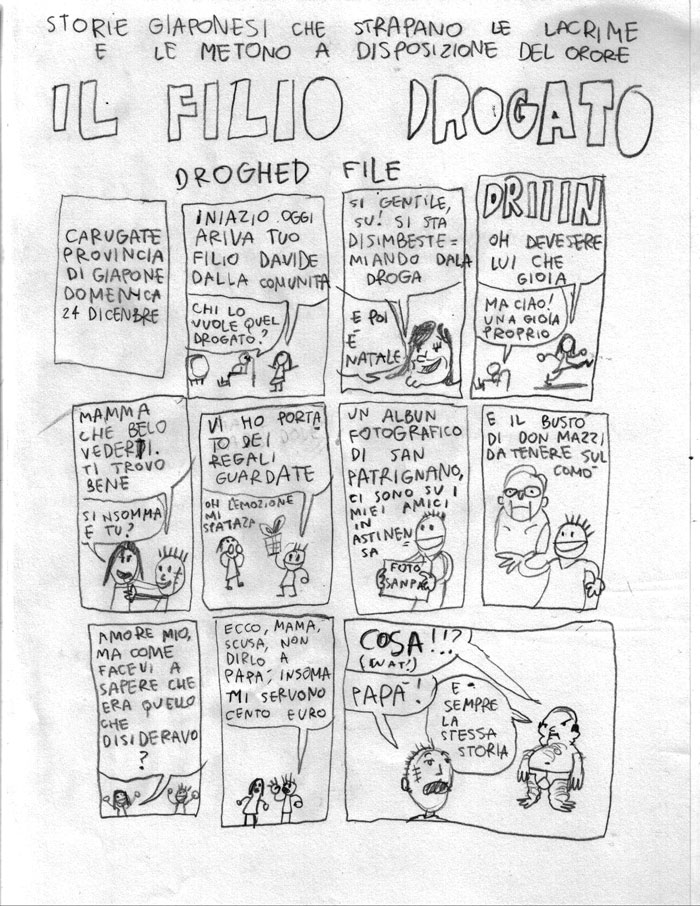 STORIE GIAPONESI CHE STRAPANO LE LACRIME
E LE METONO A DISPOSIZIONE DEL ORORE
IL FILIO DROGATO
DROGHED FILE
CARUGATE
PROVINCIA
DI GIAPONE
DOMENICA
24 DICENBRE
INIAZIO OGGI
ARIVA TUO
FILIO DAVIDE
DALLA COMUNITA
CHI LO
VUOLE QUEL
DROGATO?
SI GENTILE,
SU! SI STA
DISIMBESTE=
MIANDO DALA
DROGA
E POI
È
NATALE
DRIIIN
OH DEVESERE
LUI CHE
GIOIA
MA CIAO!
UNA GIOIA
PROPRIO
MAMMA
CHE BELO
VEDERTI.
TI TROVO
BENE
SI INSOMMA
E TU?
VI HO PORTA
TO DEI
REGALI
GUARDATE
OH L'EMOZIONE
MI
SPATAZA
UN ALBUN
FOTOGRAFICO
DI SAN
PATRIGNANO,
CI SONO SU I
MIEI AMICI
IN
ASTINEN
SA
FOTO
SANPA
E IL BUSTO
DI DON MAZZI
DA TENERE SUL
COMÒ
AMORE MIO,
MA COME
FACEVI A
SAPERE CHE
ERA QUELLO
CHE
DISIDERAVO
?
ECCO, MAMA,
SCUSA, NON
DIRLO A
PAPÀ, INSOMA
MI SERVONO
CENTO EURO
COSA!!?
(WAT?)
PAPÀ!
E
SEMPRE
LA
STESSA
STORIA